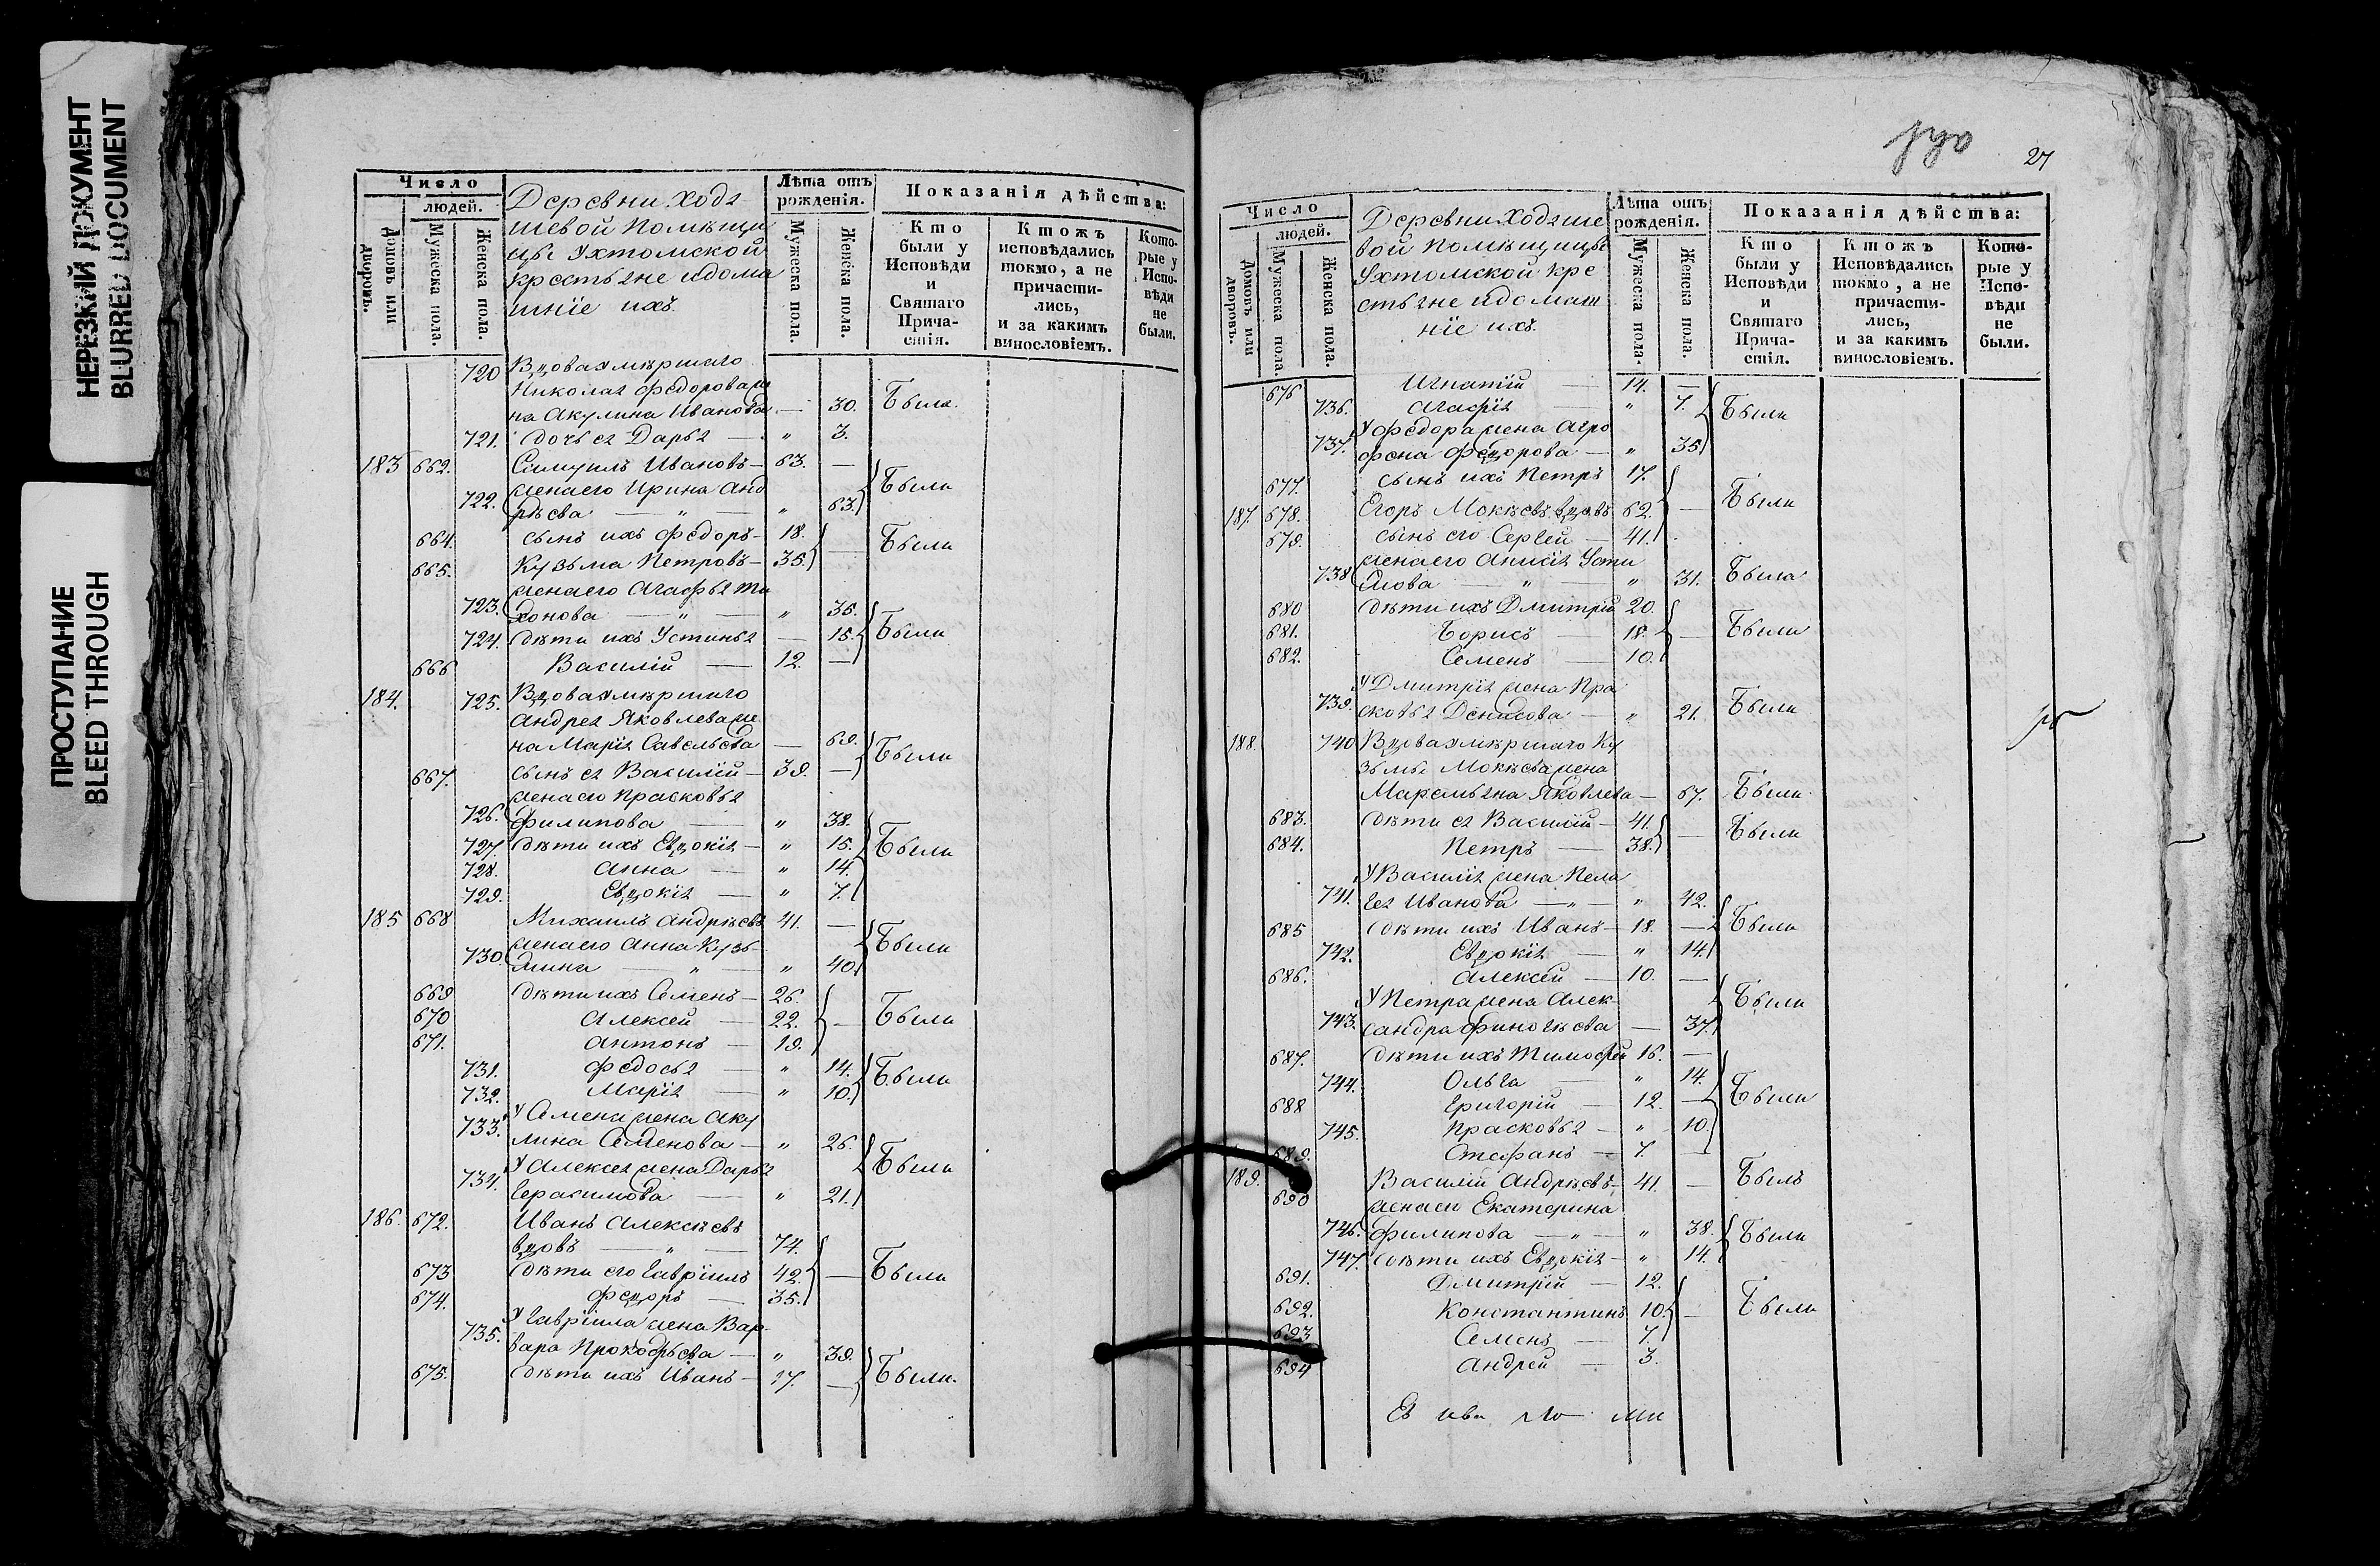 НЕРЕЗКИЙ ДОКУМЕНТ
BLURRED DOCUMENT
ПРОСТУПАНИЕ
BLEED THROUGH
Число
людей.
Домовъ или дворовъ.
Мужеска пола.
Женска пола.
Деревни Ходя-
шевой Помѣщи
цы Ухтомской
крестьяне идома
шніе ихъ.
Лѣта отъ рожденія.
Мужеска пола.
Женска пола.
Показанія дѣйства:
Кто были у Исповѣди и Святаго Прича-стія.
Ктожъ исповѣдались токмо, а не причасти-лись, и за какимъ винословіемъ.
Кото-рые у Испо-вѣди не были.
720 Вдова умѣршаго
Николая Федорова же
на Акулина Иванова — 30. Была.
721. дочь ея Дарья — „ 3.
183 662. Самуилъ Ивановъ — 63. —
жена его Ирина Анд
722. рѣева — „ — „ 63. Были
664. сынъ ихъ Федоръ — 18.
665. Кузьма Петровъ — 35. — Были
жена его Агафья Ти
723. хонова — „ — „ 35.
724. дѣти ихъ Устинья — 15. Были
666 Василій — 12. —
184. 725. Вдова умѣршаго
Андрея Яковлева же
на Марія Савельева — 69.
667. сынъ ея Василій — 39. — Были
жена его Прасковья
726. Филипова — „ 38.
727. дѣти ихъ Евдокія — „ 15. Были
728. Анна — „ 14.
729. Евдокія — „ 7.
185 668 Михаилъ Андрѣевъ 41. —
жена его Анна Кузь-
730. мина — „ — „ 40. Были
669 дѣти ихъ Семенъ — 26.
670 Алексей — 22. — Были
671. Антонъ — 19.
731. Федосья — „ 14.
732. Марія — „ 10. Были
733. У Семена жена Аку
лина Семенова — „ 26.
734. У Алексея жена Дарья Были
Герасимова — „ 21.
186. 672. Иванъ Алексѣевъ
вдовъ — „ — 74.
673 дѣти его Гавріилъ 42. — Были
674. Федоръ — 35.
735. У Гавріила жена Вар-
вара Прокофьева — „ 39.
675. дѣти ихъ Иванъ — 17. — Были.
27
Число
людей.
Домовъ или дворовъ.
Мужеска пола.
Женска пола.
Деревни Ходяше
вой Помѣщицы
Ухтомской кре
стьяне идомаш
ніе ихъ.
Лѣта отъ рожденія.
Мужеска пола.
Женска пола.
Показанія дѣйства:
Кто были у Исповѣди и Святаго Прича-стія.
Ктожъ Исповѣдались токмо, а не причасти-лись, и за какимъ винословіемъ.
Кото-рые у Испо-вѣди не были.
676 Игнатій — 14. —
736. Агафія — „ 7. Были
737. У Федора жена Агро
фена Федорова — „ 35
677. сынъ ихъ Петръ 17.
187. 678. Егоръ Мокѣевъ вдовъ 62. — Были
679. сынъ его Сергей — 41.
жена его Анисія Усти
738 мова — „ — „ 31. Была
680 дѣти ихъ Дмитрій 20.
681. Борисъ — 18. — Были
682. Семенъ — 10.
У Дмитрія жена Пра
739. сковья Денисова — „ 21. Была
188. 740 Вдова умѣршаго Ку
зьмы Мокѣева жена
Маремьяна Яковлева — 67. Была
683. дѣти ея Василій — 41.
684. Петръ — 38. — Были
У Василія жена Пела
741. гея Иванова — „ — „ 42.
685 дѣти ихъ Иванъ — 18. — Были
742. Евдокія — „ 14.
686. Алексей — 10. —
У Петра жена Алек- Были
743. сандра Финогѣева — 37.
687. дѣти ихъ Тимофей 16. —
744. Ольга — „ 14.
688 Григорій — 12. — Были
745. Прасковья — „ 10.
689. Стефанъ — 7. —
189. 690 Василій Андрѣевъ — 41. — Былъ
жена его Екатерина
746. Филипова — „ — „ 38. Были
747. дѣти ихъ Евдокія — „ 14.
691. Дмитрій — 12.
692. Константинъ 10. — Были
693 Семенъ — 7.
694 Андрей — 3.